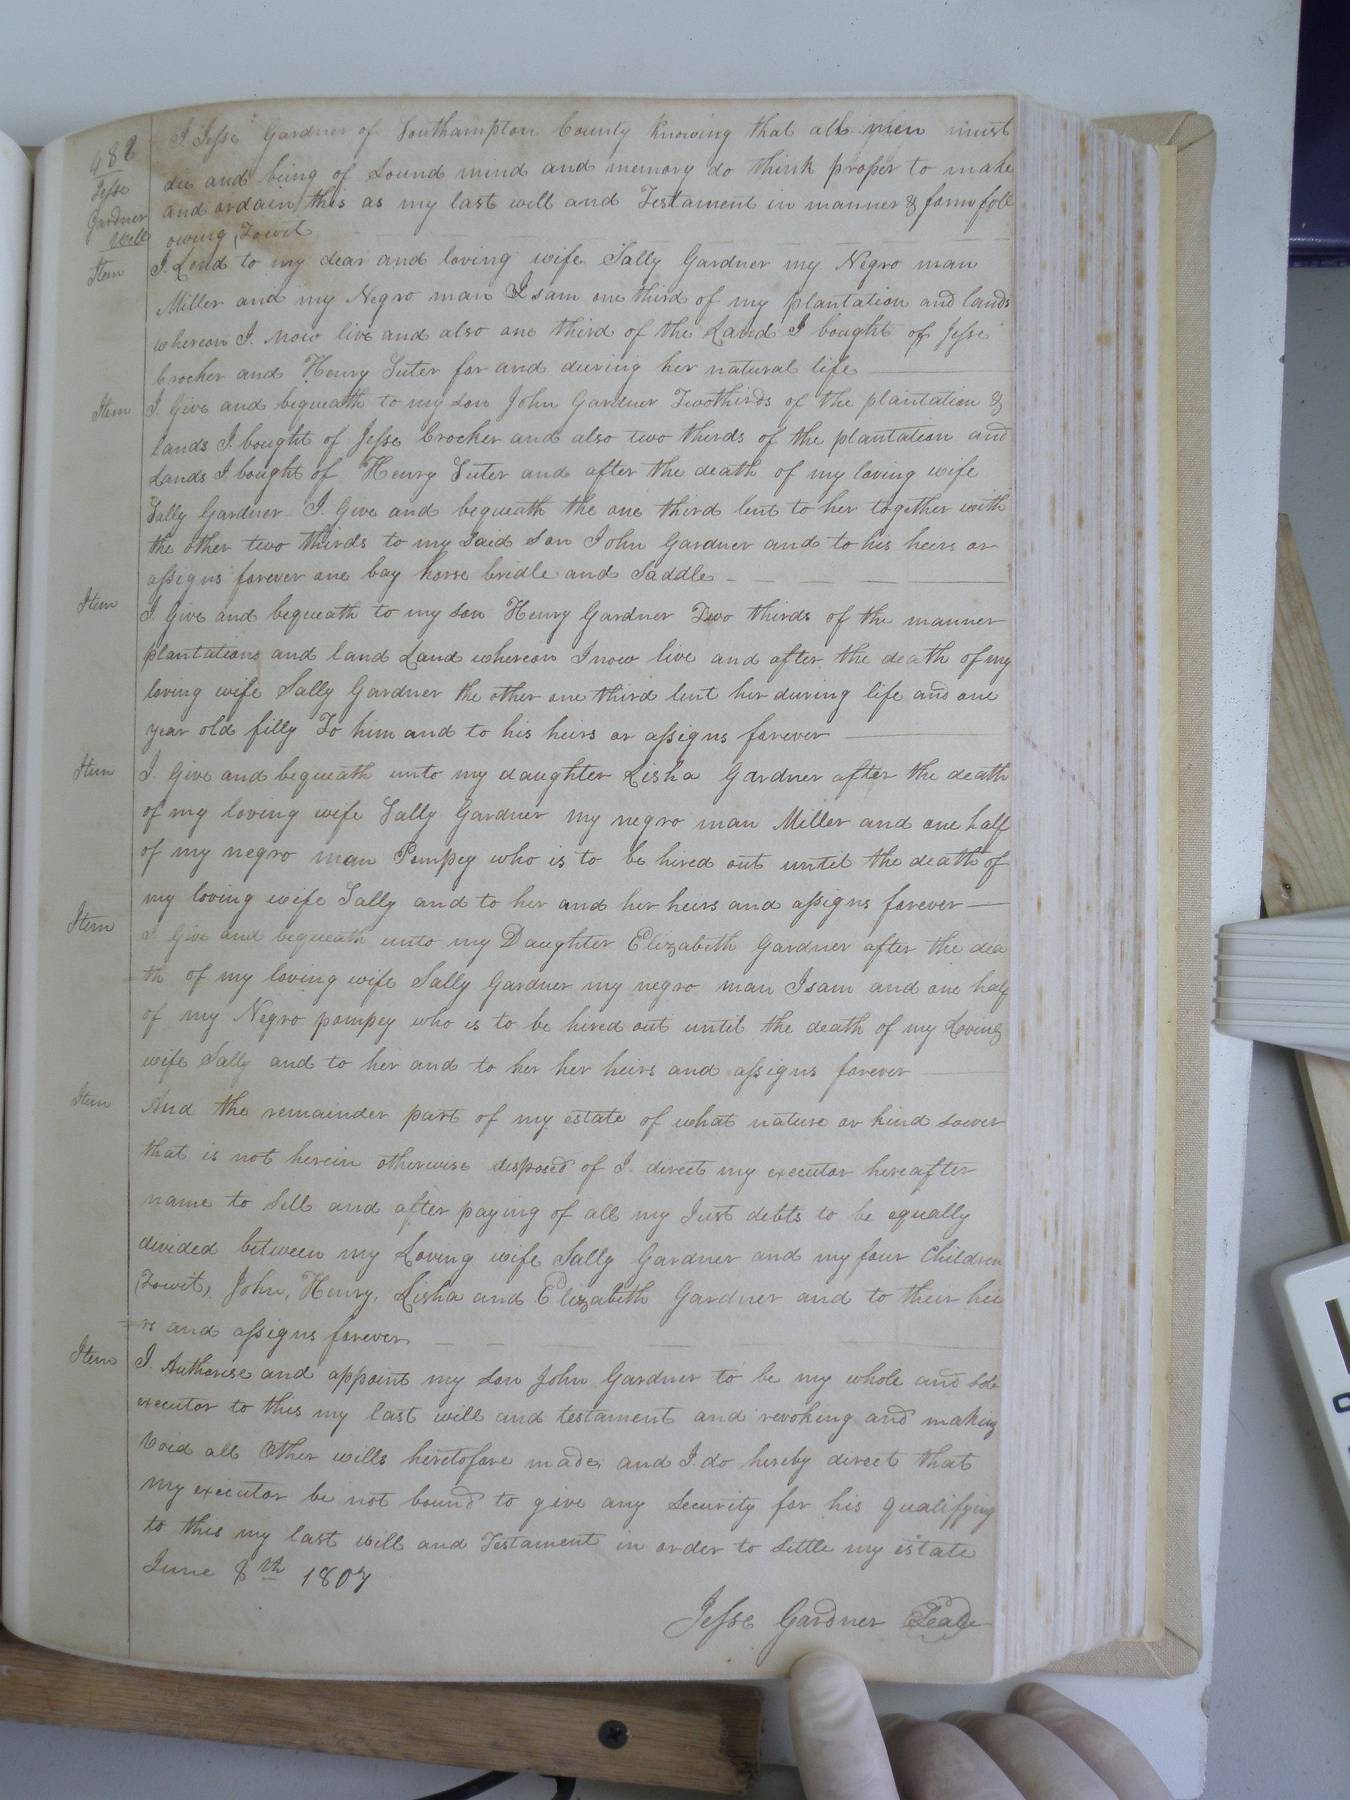 488
Jesse
Gardner
Will
I Jesse Gardner of Southampton County knowing that all men must
die and being of Sound mind and memory do think proper to make
and ordain this as my last will and Testament in manner & form foll
owing, Towit
Item I Lend to my dear and loving wife Sally Gardner my Negro man
Miller and my Negro man Isam one third of my plantation and lands
whereon I now live and also one third of the Land I bought of Jesse
Crocker and Henry Suter for and during her natural life
Item I Give and bequeath to my son John Gardner Twothirds of the plantation &
lands I bought of Jesse Crocker and also two thirds of the plantation and
Lands I bought of Henry Suter and after the death of my loving wife
Sally Gardner I Give and bequeath the one third lent to her together with
the other two thirds to my Said Son John Gardner and to his heirs or
assigns forever one bay horse bridle and Saddle
Item I Give and bequeath to my son Henry Gardner Two thirds of the manner
plantations and land Land whereon I now live and after the death of my
loving wife Sally Gardner the other one third lent her during life and one
year old filly To him and to his heirs or assigns forever
Item I Give and bequeath unto my daughter Lisha Gardner after the death
of my loving wife Sally Gardner my negro man Miller and one half
of my negro man Pompey who is to be hired out until the death of
my loving wife Sally and to her and her heirs and assigns forever
Item I Give and bequeath unto my Daughter Elizabeth Gardner after the dea
th of my loving wife Sally Gardner my negro man Isam and one half
of my Negro pompey who is to be hired out until the death of my Loving
wife Sally and to her and to her her heirs and assigns forever
Item And the remainder part of my estate of what nature or kind soever
that is not herein otherwise disposed of I direct my executor hereafter
name to Sell and after paying of all my Just debts to be equally
divided between my Loving wife Sally Gardner and my four Children
(Towit), John, Henry, Lisha and Elizabeth Gardner and to their hei
rs and assigns forever
Item I Authorise and appoint my son John Gardner to be my whole and sole
executor to this my last will and testament and revoking and making
Void all Other wills heretofore made and I do hereby direct that
my executor be not bound to give any Security for his qualifying
to this my last will and Testament in order to Settle my estate
June 8th 1807
Jesse Gardner Seal